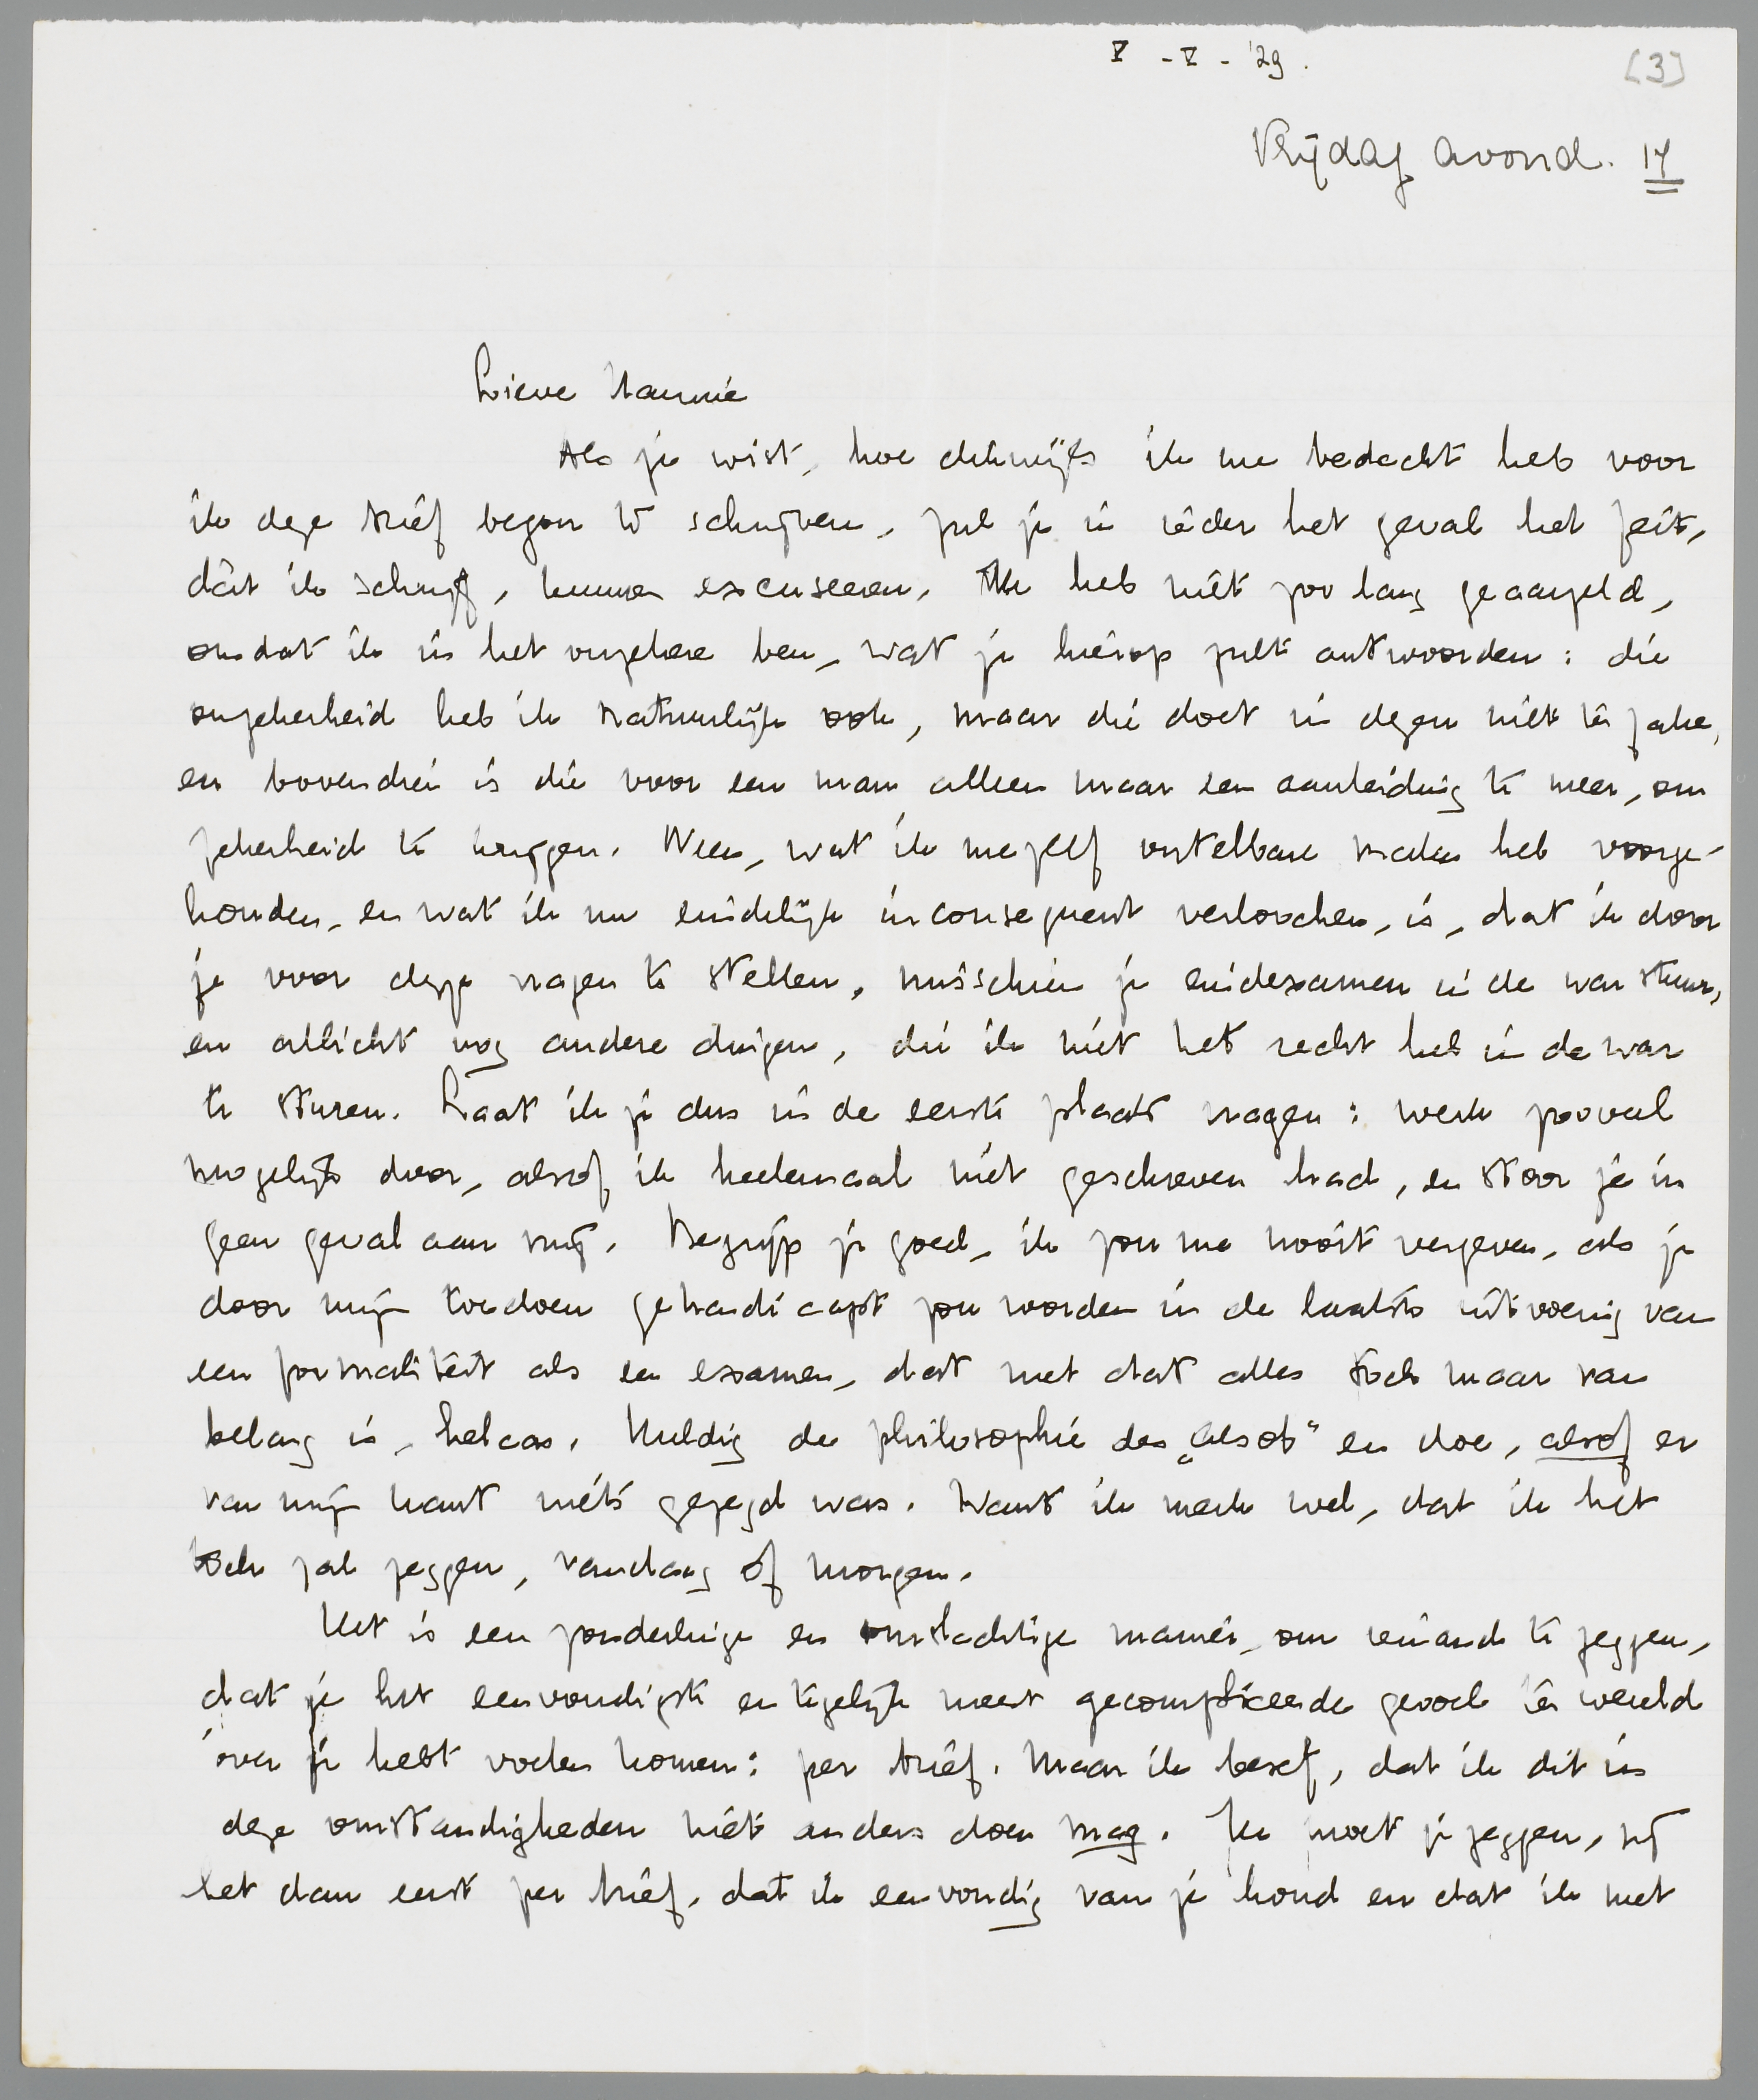 V - V - '29.
[3]
Vrijdag avond. 17
Lieve Hannie
Als je wist, hoe dikwijls ik me bedacht heb voor
ik deze brief begon te schrijven, zul je in ieder het geval het feit,
dàt ik schrijf, kunnen excuseeren. Ik heb niet zoo lang geaarzeld,
omdat ik in het onzekere ben, wat je hierop zult antwoorden: die
onzekerheid heb ik natuurlijk ook, maar die doet in dezen niet ter zake,
en bovendien is die voor een man alleen maar een aanleiding te meer, om
zekerheid te krijgen. Neen, wat ik mezelf ontelbare malen heb voorge-
houden, en wat ik nu eindelijk inconsequent verloochen, is, dat ik door
je voor deze vragen te stellen, misschien je eindexamen in de war stuur,
en allicht nog andere dingen, die ik niet het recht heb in de war
te sturen. Laat ik je dus in de eerste plaats vragen: werk zooveel
mogelijk door, alsof ik heelemaal niet geschreven had, en stoor je in
geen geval aan mij. Begrijp je goed, ik zou me nooit vergeven, als je
door mijn toedoen gehandicapt zou worden in de laatste uitvoering van
een formaliteit als een examen, dat met dat alles toch maar van
belang is, helaas. Huldig de philosophie des „als ob" en doe, alsof er
van mijn kant niets gezegd was. Want ik merk wel, dat ik het
toch zal zeggen, vandaag of morgen.
Het is een zonderlinge en omslachtige manier, om iemand te zeggen,
dat je het eenvoudigste en tegelijk meest gecompliceerde gevoel ter wereld
over je hebt voelen komen: per brief. Maar ik besef, dat ik dit in
deze omstandigheden niet anders doen mag. Ik moet je zeggen, zij
het dan eerst per brief, dat ik eenvoudig van je houd en dat ik met